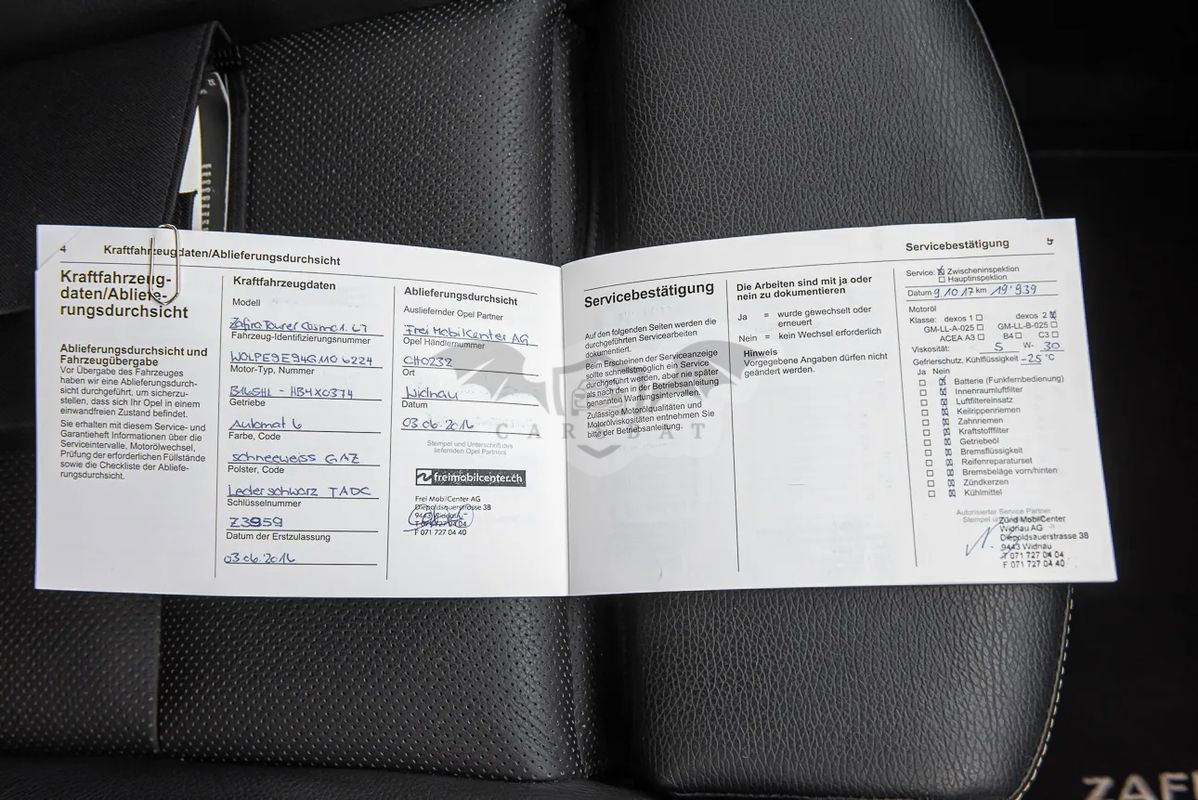 4 Kraftfahrzeugdaten/Ablieferungsdurchsicht
Kraftfahrzeug-
daten/Abliefe-
rungsdurchsicht
Ablieferungsdurchsicht und
Fahrzeugübergabe
Vor Übergabe des Fahrzeuges
haben wir eine Ablieferungsdurch-
sicht durchgeführt, um sicherzu-
stellen, dass sich Ihr Opel in einem
einwandfreien Zustand befindet.
Sie erhalten mit diesem Service- und
Garantieheft Informationen über die
Serviceintervalle, Motorölwechsel,
Prüfung der erforderlichen Füllstände
sowie die Checkliste der Abliefe-
rungsdurchsicht.
Kraftfahrzeugdaten
Modell
Zafira Tourer Cosmo 1.6T
Fahrzeug-Identifizierungsnummer
W0LPE9E94G1106224
Motor-Typ, Nummer
B16SHL - HB4X0374
Getriebe
Automat 6
Farbe, Code
schneeweiss GAZ
Polster, Code
Leder schwarz TADC
Schlüsselnummer
Z3959
Datum der Erstzulassung
03.06.2016
Ablieferungsdurchsicht
Ausliefernder Opel Partner
Frei MobilCenter AG
Opel Händlernummer
CH0232
Ort
Widnau
Datum
03.06.2016
Stempel und Unterschrift des
liefernden Opel Partners
freimobilcenter.ch
Frei MobilCenter AG
Diepoldsauerstrasse 38
9443 Widnau
T 071 727 04 04
F 071 727 04 40
Servicebestätigung 5
Servicebestätigung
Auf den folgenden Seiten werden die
durchgeführten Servicearbeiten
dokumentiert.
Beim Erscheinen der Serviceanzeige
sollte schnellstmöglich ein Service
durchgeführt werden, aber nie später
als nach den in der Betriebsanleitung
genannten Wartungsintervallen.
Zulässige Motorölqualitäten und
Motorölviskositäten entnehmen Sie
bitte der Betriebsanleitung.
Die Arbeiten sind mit ja oder
nein zu dokumentieren
Ja = wurde gewechselt oder
erneuert
Nein = kein Wechsel erforderlich
Hinweis
Vorgegebene Angaben dürfen nicht
geändert werden.
Service: Zwischeninspektion
Hauptinspektion
Datum 9.10.17 km 19'939
Motoröl
Klasse: dexos 1 dexos 2
GM-LL-A-025 GM-LL-B-025
ACEA A3 B4 C3
Viskosität: 5 W- 30
Gefrierschutz, Kühlflüssigkeit -25 °C
Ja Nein
Batterie (Funkfernbedienung)
Innenraumluftfilter
Luftfiltereinsatz
Keilrippenriemen
Zahnriemen
Kraftstofffilter
Getriebeöl
Bremsflüssigkeit
Reifenreparaturset
Bremsbeläge vorn/hinten
Zündkerzen
Kühlmittel
Autorisierter Service Partner
Zünd MobilCenter
Widnau AG
Diepoldsauerstrasse 38
9443 Widnau
T 071 727 04 04
F 071 727 04 40
CARBAT
ZAFI